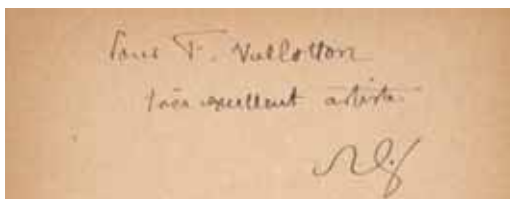 Pour F. Vallotton
très excellent artiste